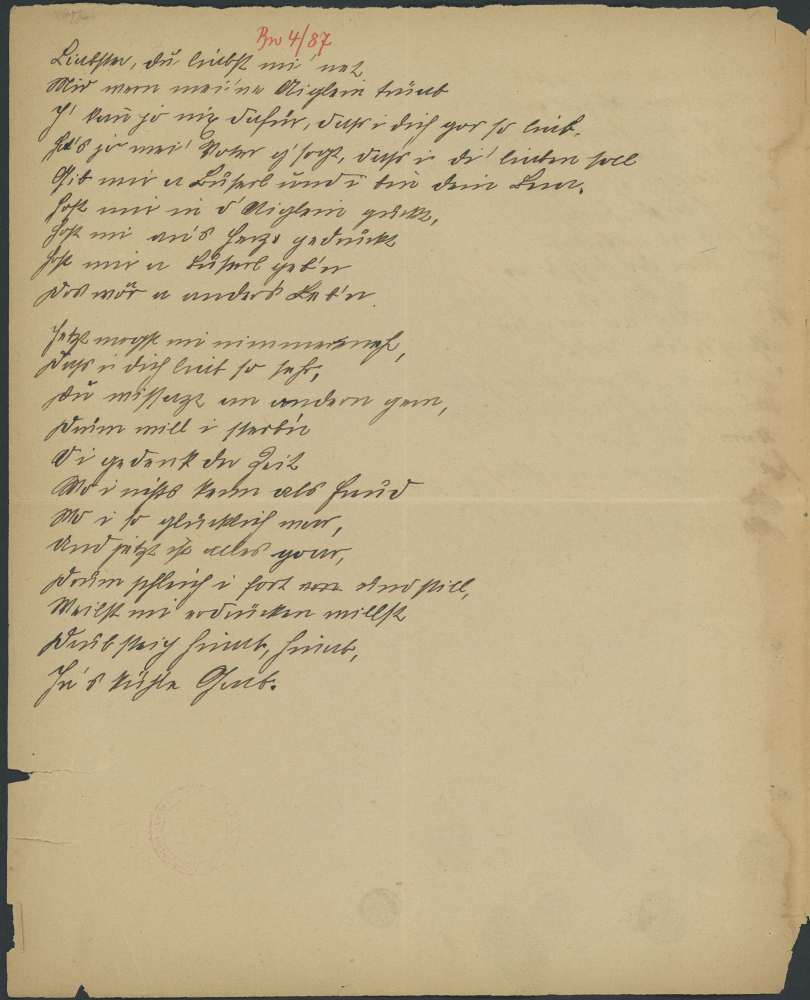 Bw 4/87
Liabster, du liabst mi' net
Mir wern mei'ne Aiglein trüab
I' kann jo nix dafür, dass i dich gor so liab.
Hot's jo mei' Voter g'sogt, dass i di' lieben soll
Gib mir a Busserl und i bin dein Bua.
Host mir in d' Aiglein guckt,
Host mi an's Herze gedruckt
Host mir a Busserl geb'n
Dos wär a anders Leb'n.
Jetzt mogst mi nimmermehr,
Dass i dich liab so sehr,
Du an andern gern,
Drum will i sterb'n
O i gedenk der Zeit
Wo i nichts kenn als Freud
Wo i so glücklich war,
Und jetzt is alles goar,
Drum schleich i fort und still,
Weilst mi erdrücken willst
Drub steig hinab, hinab,
In's kühle Grab.